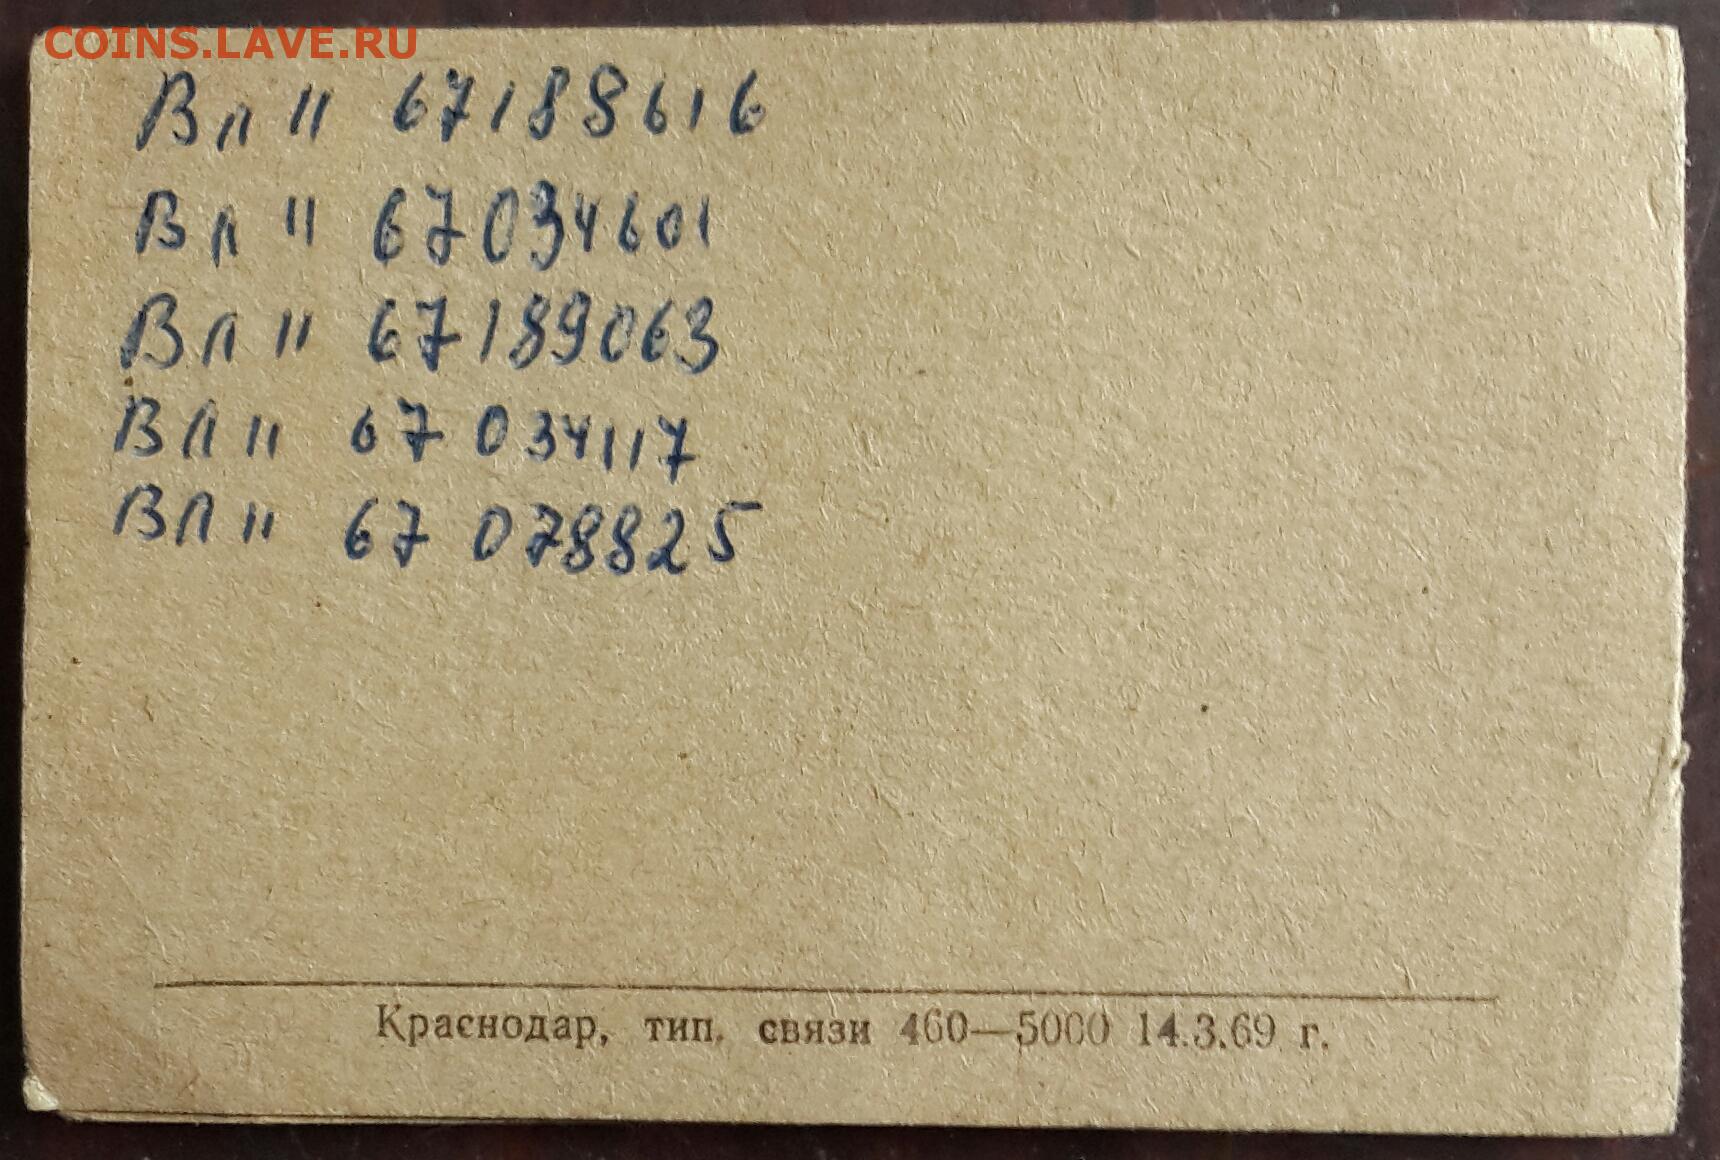 COINS.LAVE.RU
Вл " 67188616
Вл " 67034601
Вл " 67189063
Вл " 67 034117
Вл " 67 078825
Краснодар, тип. связи 460—5000 14.3.69 г.